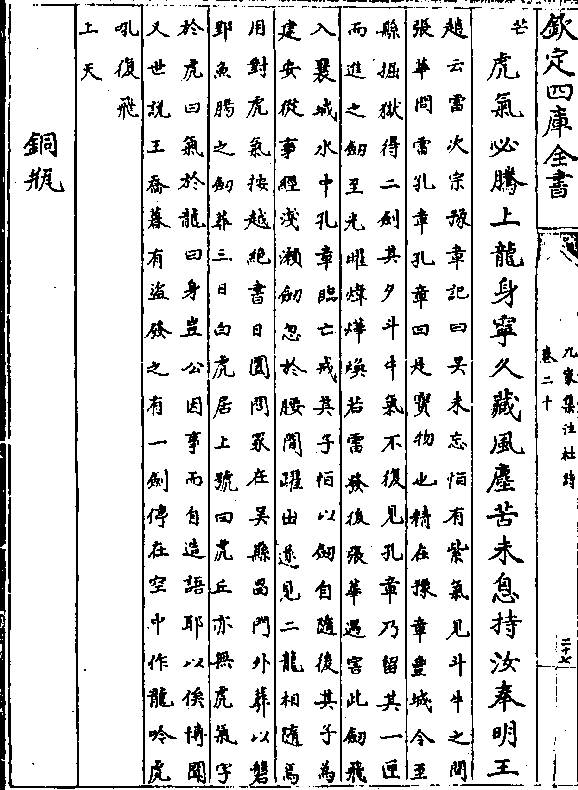 欽定四庫全書
九家集注杜詩
卷二十
二十七
芒
虎氣必騰上龍身寧久藏風塵苦未息持汝奉明王
趙云雷次宗豫章記曰吳未忘怕有紫氣見斗牛之間
張華問雷孔章孔章曰是寶物也精在豫章豐城令至
縣掘獄得二劍其夕斗牛氣不復見孔章乃留其一匣
而進之劍至光曜煒燁煥若雷發後張華遇害此劍飛
入襄城水中孔章臨亡戒其子怕以劍自隨後其子為
建安從事經淺瀨劍忽於腰間躍出遂見二龍相隨焉
用對虎氣按越絕書曰闔閭冢在吳縣昌門外葬以磐
郢魚腸之劍葬三日白虎居上號曰虎丘亦無虎氣字
於虎曰氣於龍曰身豈公因事而自造語耶以俟博聞
又世說王喬墓有盜發之有一劍停在空中作龍吟虎
吼復飛
上天
銅瓶